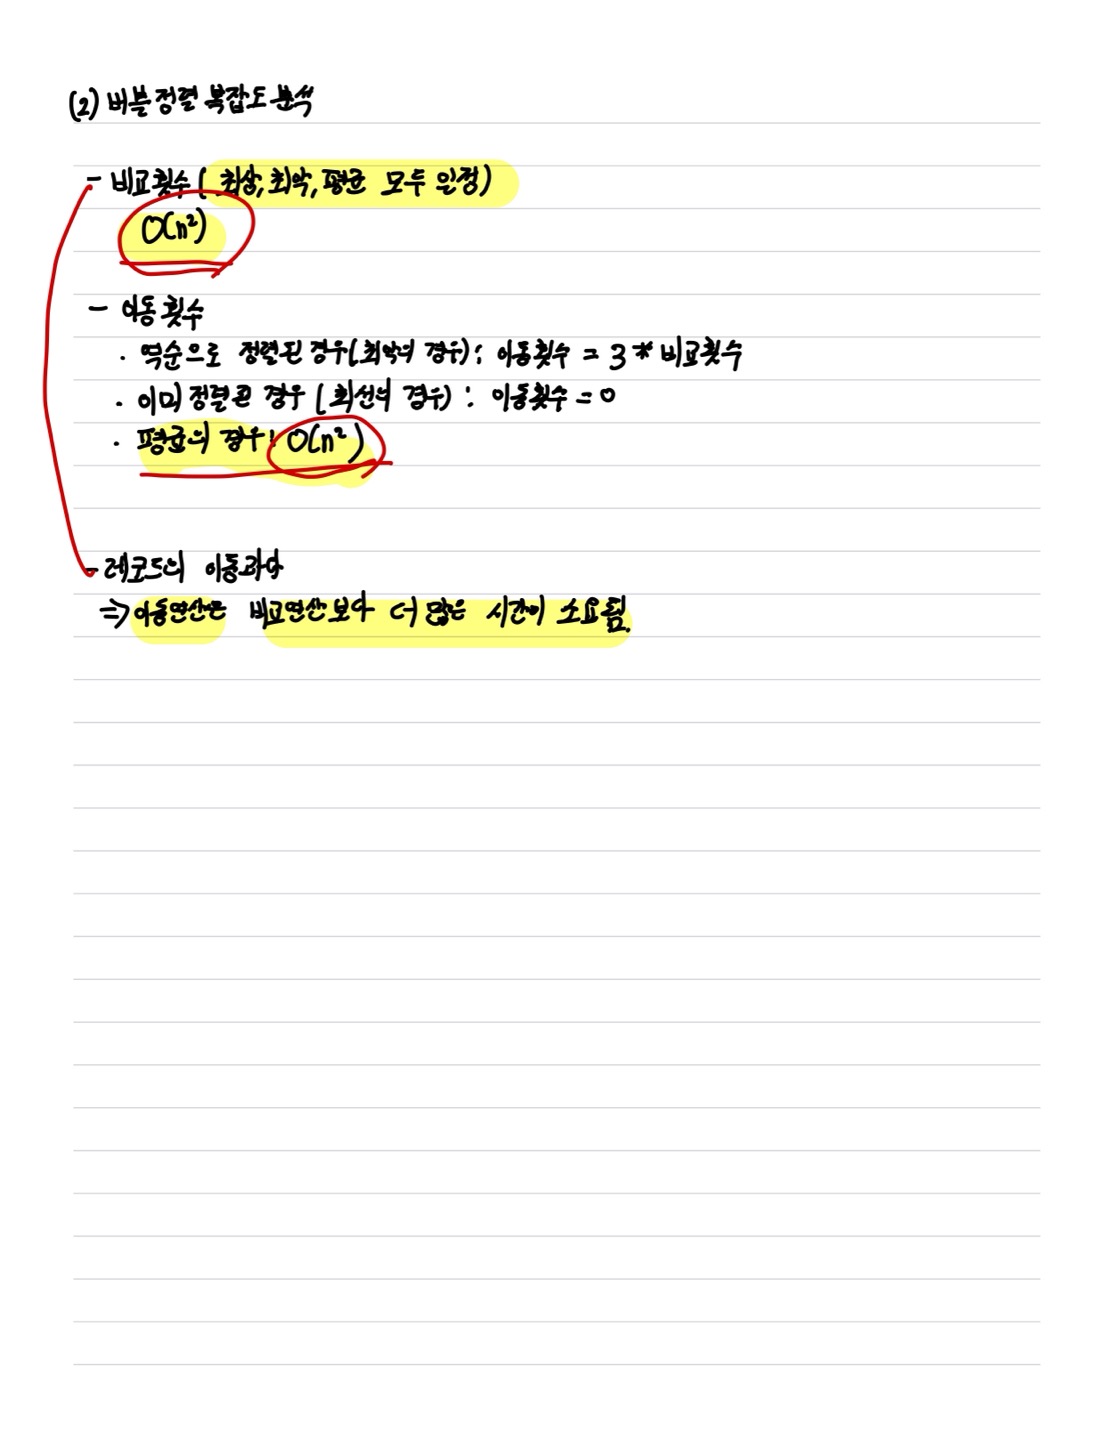 (2) 버블정렬 복잡도 분석
- 비교횟수 (최상, 최악, 평균 모두 일정)
O(n²)
- 이동횟수
· 역순으로 정렬된 경우(최악의 경우) : 이동횟수 = 3 * 비교횟수
· 이미 정렬된 경우 (최선의 경우) : 이동횟수 = 0
· 평균의 경우 : O(n²)
- 레코드의 이동과다
⇒ 이동연산은 비교연산보다 더 많은 시간이 소요됨.